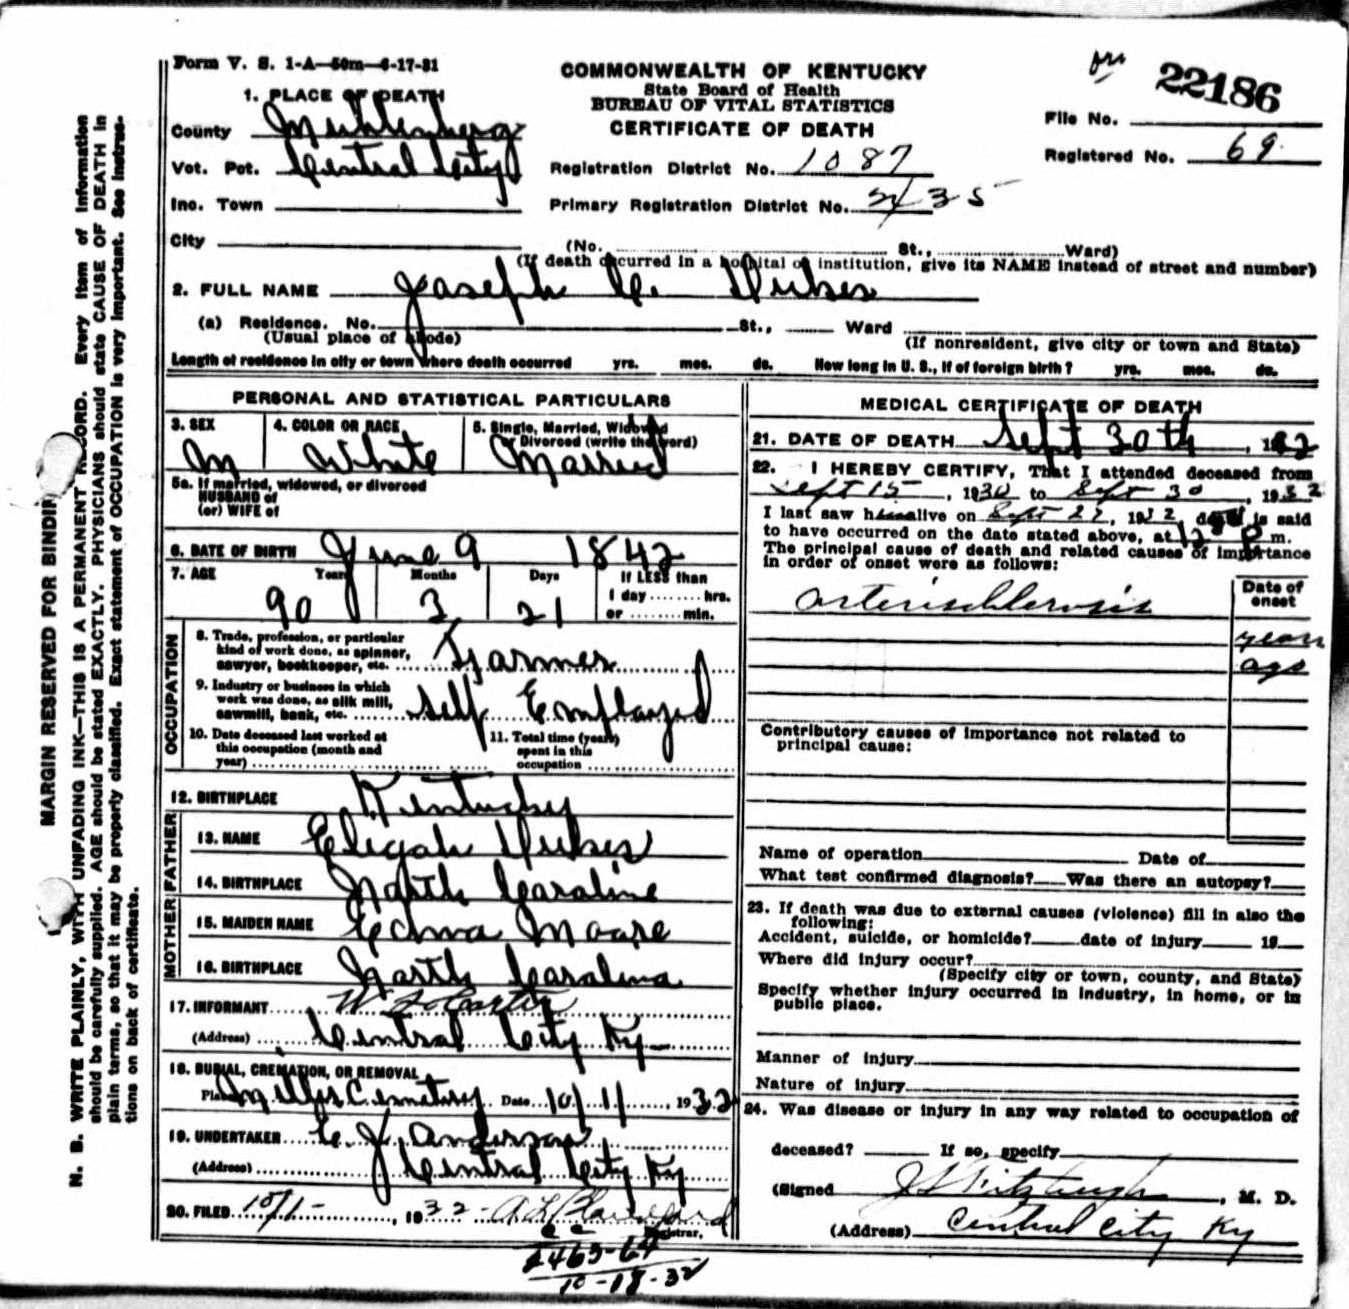 Form V. S. 1-A—50m—6-17-31
COMMONWEALTH OF KENTUCKY
State Board of Health
BUREAU OF VITAL STATISTICS
CERTIFICATE OF DEATH
22186
File No.
Registered No. 69
1. PLACE OF DEATH
County Muhlenberg
Vot. Pct. Central City
Registration District No. 1087
Inc. Town
Primary Registration District No. 2435
City (No. St., Ward)
(If death occurred in a hospital or institution, give its NAME instead of street and number)
2. FULL NAME Joseph C. Dukes
(a) Residence. No. St., Ward
(Usual place of abode) (If nonresident, give city or town and State)
Length of residence in city or town where death occurred yrs. mos. ds. How long in U. S., if of foreign birth? yrs. mos. ds.
PERSONAL AND STATISTICAL PARTICULARS
3. SEX 4. COLOR OR RACE 5. Single, Married, Widowed
or Divorced (write the word)
M White Married
5a. If married, widowed, or divorced
HUSBAND of
(or) WIFE of
6. DATE OF BIRTH June 9 1842
7. AGE Years Months Days If LESS than
1 day ........ hrs.
90 3 21 or ........ min.
OCCUPATION
8. Trade, profession, or particular
kind of work done, as spinner,
sawyer, bookkeeper, etc. Farmer
9. Industry or business in which
work was done, as silk mill,
sawmill, bank, etc. Self Employed
10. Date deceased last worked at
this occupation (month and
year)
11. Total time (years)
spent in this
occupation
12. BIRTHPLACE Kentucky
FATHER
13. NAME Eligah Dukes
14. BIRTHPLACE North Caroline
MOTHER
15. MAIDEN NAME Edna Moore
16. BIRTHPLACE North Carolina
17. INFORMANT W Carter
(Address) Central City Ky—
18. BURIAL, CREMATION, OR REMOVAL
Place Cemetery Date 10/1/ 1932
19. UNDERTAKER C. J. Anderson
(Address) Central City Ky
20. FILED 10/1- , 1932-
Registrar.
2463-64
10-18-32
MEDICAL CERTIFICATE OF DEATH
21. DATE OF DEATH Sept 30th, 1932
22. I HEREBY CERTIFY, That I attended deceased from
Sept 15, 1930 to Sept 30, 1932
I last saw h alive on Sept 27, 1932, death is said
to have occurred on the date stated above, at 12 P m.
The principal cause of death and related causes of importance
in order of onset were as follows:
Date of
onset
arterischlerosis
years
ago
Contributory causes of importance not related to
principal cause:
Name of operation Date of
What test confirmed diagnosis? Was there an autopsy?
23. If death was due to external causes (violence) fill in also the
following:
Accident, suicide, or homicide? date of injury 19
Where did injury occur?
(Specify city or town, county, and State)
Specify whether injury occurred in industry, in home, or in
public place.
Manner of injury
Nature of injury
24. Was disease or injury in any way related to occupation of
deceased? If so, specify
(Signed Fitzhugh, M. D.
(Address) Central City Ky
MARGIN RESERVED FOR BINDING
N. B. WRITE PLAINLY, WITH UNFADING INK—THIS IS A PERMANENT RECORD. Every item of information
should be carefully supplied. AGE should be stated EXACTLY. PHYSICIANS should state CAUSE OF DEATH in
plain terms, so that it may be properly classified. Exact statement of OCCUPATION is very important. See instruc-
tions on back of certificate.